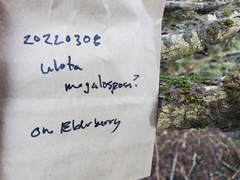 20220308
Ulota
megalospora?
on Elderberry